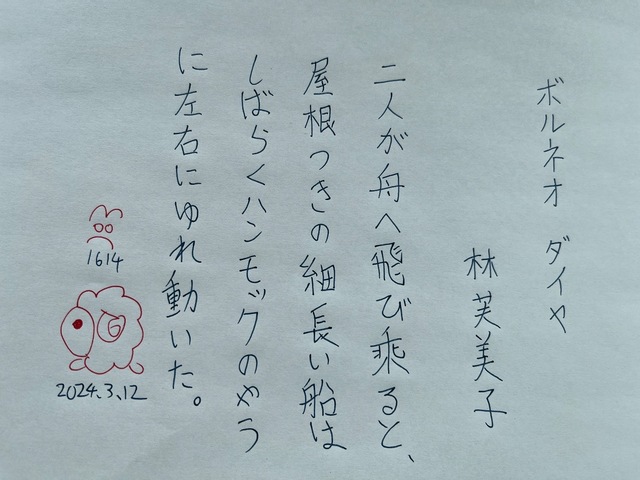 ボルネオ ダイヤ
林芙美子
二人が舟へ飛び乗ると、
屋根つきの細長い船は
しばらくハンモックのやう
に左右にゆれ動いた。
1614
2024.3.12